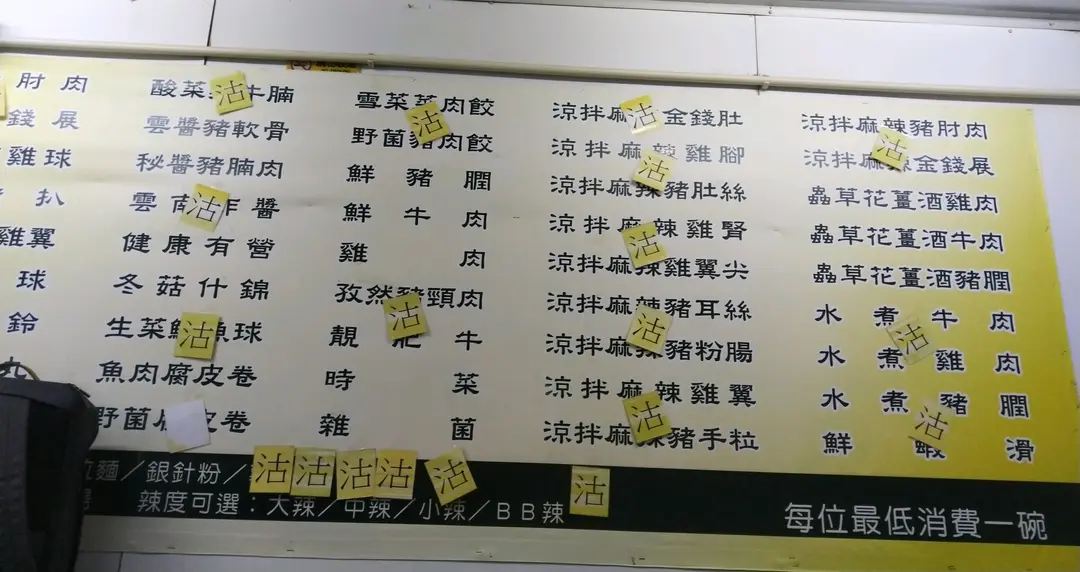 肘肉
錢展
雞球
扒
雞翼
球
鈴
酸菜 牛腩
雲醬豬軟骨
秘醬豬腩肉
雲南炸醬
健康有營
冬菇什錦
生菜鯪魚球
魚肉腐皮卷
野菌腐皮卷
雪菜 肉餃
野菌豬肉餃
鮮豬膶
鮮牛肉
雞肉
孜然豬頸肉
靚肥牛
時菜
雜菌
涼拌麻 金錢肚
涼拌麻辣雞腳
涼拌麻辣豬肚絲
涼拌麻辣雞腎
涼拌麻辣雞翼尖
涼拌麻辣豬耳絲
涼拌麻辣豬粉腸
涼拌麻辣雞翼
涼拌麻辣豬手粒
涼拌麻辣豬肘肉
涼拌麻辣金錢展
蟲草花薑酒雞肉
蟲草花薑酒牛肉
蟲草花薑酒豬膶
水煮牛肉
水煮雞肉
水煮豬膶
鮮蝦滑
沽
沽
沽
沽
沽
沽
沽
沽
沽
沽
沽
沽
沽
沽
沽 沽 沽 沽 沽 沽
麵／銀針粉／
辣度可選：大辣／中辣／小辣／BB辣
每位最低消費一碗